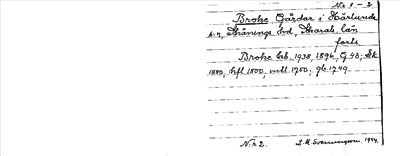 No 1-2.
Broke Gårdar i Härlunda
s:n, Skånings hd, Skarab. län
forts.
Broke Erb. 1938, 1894, G 43; Sk
1880, hfl 1800, mtl 1750; gb 1749.
N:r 2. S. M. Svenungson. 1944.